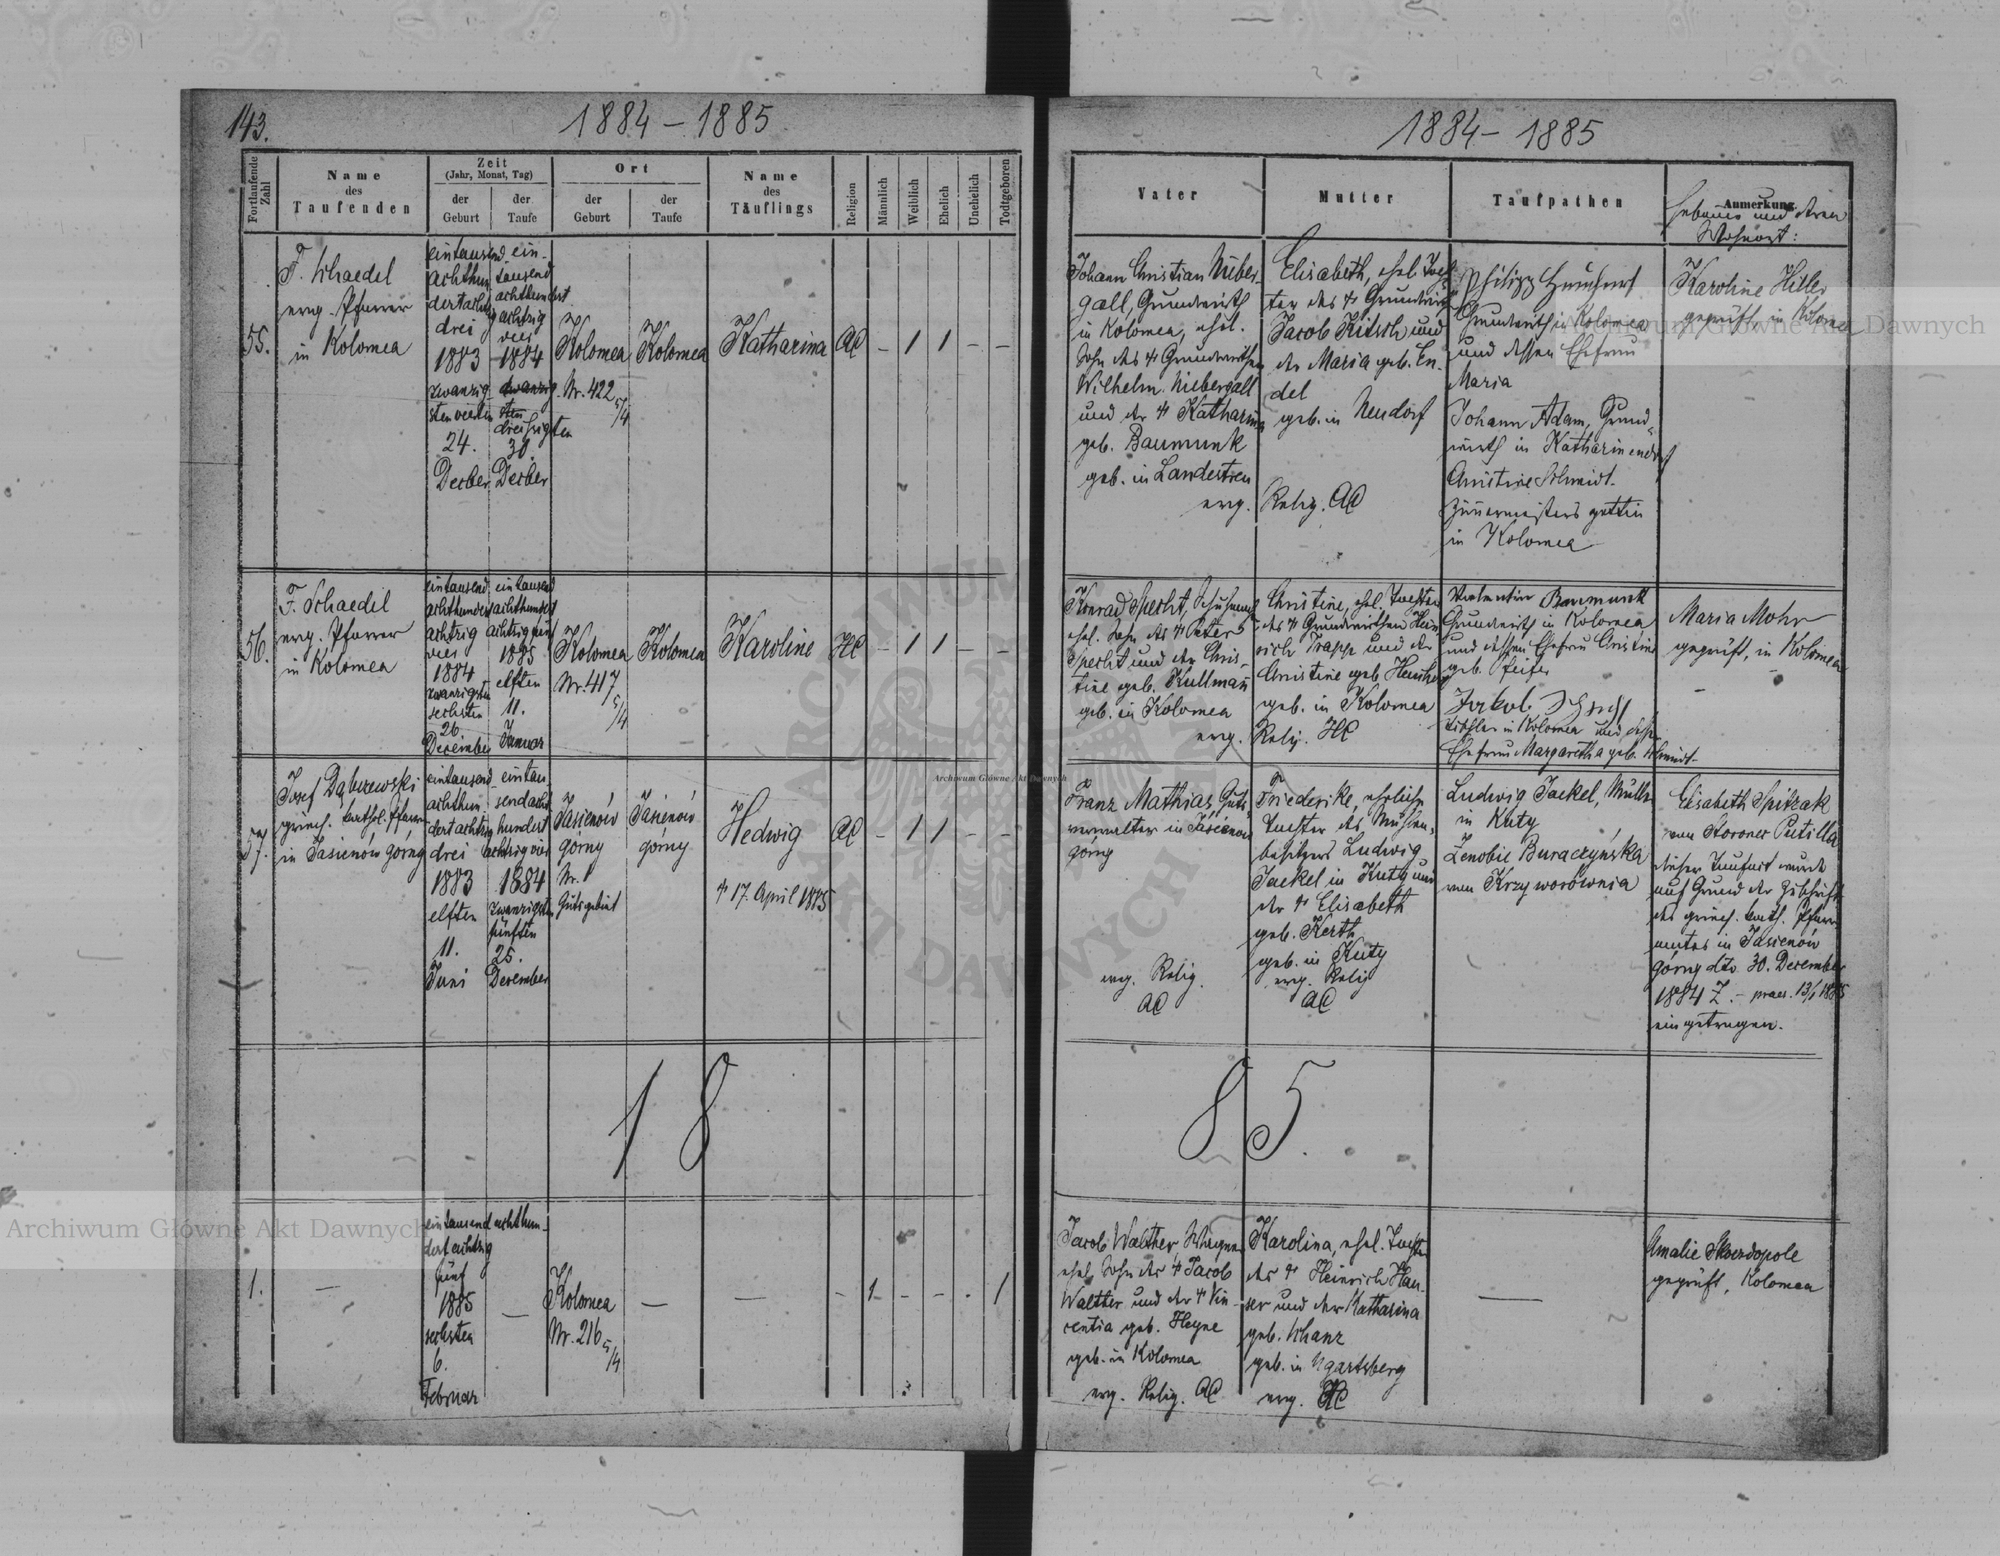 143.
1884 – 1885
Fortlaufende Zahl
Name
des
Taufenden
Zeit
(Jahr, Monat, Tag)
der
Geburt
der
Taufe
Ort
der
Geburt
der
Taufe
Name
des
Täuflings
Religion
Männlich
Weiblich
Ehelich
Unehelich
Todtgeboren
55.
F. Schaedel
evng. Pfarrer
in Kolomea
eintausend
achthun
dertachtzig
drei
1883
zwanzig
sten vierten
24.
Decber
ein-
tausend
achthundert
achtzig
vier
1884
zwanzig
sten
dreisigsten
30.
Decber
Kolomea
Nr. 422
5/4
Kolomea
Katharina
AC
– 1 1 – –
56.
F. Schaedel
evng. Pfarrer
in Kolomea
eintausend
achthundert
achtzig
vier
1884
zwanzigsten
sechsten
26
December
eintausend
achthundert
achtzig fünf
1885
elften
11.
Januar
Kolomea
Nr. 417
5/4
Kolomea
Karoline
HC
– 1 1 – –
57.
Josef Dąbrzewski
griech. kathol. Pfarrer
in Jasienów górny
eintausend
achthun
dert achtzig
drei
1883
elften
11.
Juni
eintau
send acht
hundert
achtzig vier
1884
zwanzigsten
fünften
25.
December
Jasienów
górny
Nr. 1
Gutsgebiet
Jasienów
górny
Hedwig
† 17. April 1885
AC
– 1 1 – –
18
1.
–
eintausend achthun-
dert achtzig
fünf
1885
sechsten
6.
Februar
–
Kolomea
Nr. 216
5/4
–
–
– 1 – – – 1
1884 – 1885
Vater
Mutter
Taufpathen
Anmerkung.
Hebame und deren
Wohnort:
Johann Christian Nieber
gall, Grundwirth
in Kolomea, ehel.
Sohn des † Grundwirthen
Wilhelm Niebergall
und der † Katharina
geb. Baumunk
geb. in Landestreu
evg.
Elisabeth, ehel. Toch
ter des † Grundwirth
Jacob Kitsch und
der Maria geb. En-
del
geb. in Neudorf
Relig. AC
Philipp
Grundwirth in Kolomea
und dessen Ehefrau
Maria
Johann Adam, Grund-
wirth in Katharinendorf
Christine Schmidt
Zimermeisters gattin
in Kolomea
Karoline Hiller
geprüft, in Kolomea
Konrad Specht,
ehel. Sohn des † Peter
Specht und der Chris-
tine geb. Kullmañ
geb. in Kolomea
evg.
Christine, ehel. Tochter
des † Grundwirthen Hein
rich Trapp und der
Christine geb.
geb. in Kolomea
Relig. HC
Valentin Baumunk
Grundwirth in Kolomea
und dessen Ehefrau Christine
geb. Pfeifer
Jakob
Tischler in Kolomea und dessen
Ehefrau Margaretha geb. Schmidt
Maria Mohr
geprüft, in Kolomea
Franz Mathias, Guts
verwalter in Jasienów
górny
evg. Relig.
AC
Friederike, eheliche
Tochter des Mühlen-
besitzers Ludwig
Jaekel in Kuty und
der † Elisabeth
geb. Kerth
geb. in Kuty
evg. Relig
AC
Ludwig Jaekel, Müller
in Kuty
Zenobie Buraczyńska
von Krzyworównia
Elisabeth Spitzak
von Storonec Putilla
dieser Taufact wurde
auf Grund der Zuschrift
des griech. kath. Pfarr
amtes in Jasienów
górny dto 30. December
1884 Z. – praes. 13/1 1885
eingetragen.
85
Jacob Walther, Wagner
ehel. Sohn des † Jacob
Walther und der † Vin-
centia geb. Heyne
geb. in Kolomea
evg. Relig. AC
Karolina, ehel. Tochter
des † Heinrich Hau-
ser und der Katharina
geb. Schanz
geb. in Ugartsberg
evg. HC
–
Amalie Skwodopole
geprüft, Kolomea
Archiwum Główne Akt Dawnych
Archiwum Główne Akt Dawnych
Archiwum Główne Akt Dawnych
ARCHIWUM GŁÓWNE AKT DAWNYCH